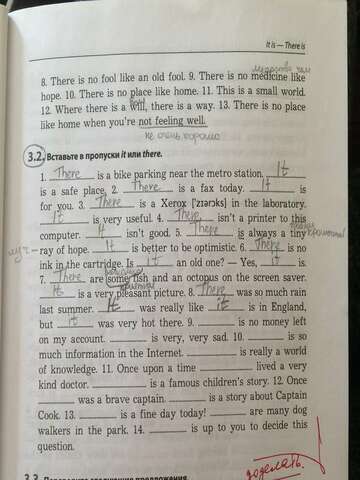 It is — There is
мудрость, чем
8. There is no fool like an old fool. 9. There is no medicine like
hope. 10. There is no place like home. 11. This is a small world.
воля
12. Where there is a will, there is a way. 13. There is no place
like home when you're not feeling well.
не очень хорошо
3.2. Вставьте в пропуски it или there.
1. There is a bike parking near the metro station. It
is a safe place. 2. There is a fax today. It is
for you. 3. There is a Xerox ['zɪərɒks] in the laboratory.
It is very useful. 4. There isn't a printer to this
computer. It isn't good. 5. There is always a tiny
луч - ray of hope. It is better to be optimistic. 6. There is no
ink in the cartridge. Is it an old one? — Yes, it is.
7. There are some fish and an octopus on the screen saver.
It is a very pleasant picture. 8. There was so much rain
last summer. It was really like it is in England,
but it was very hot there. 9. is no money left
on my account. is very, very sad. 10. is so
much information in the Internet. is really a world
of knowledge. 11. Once upon a time lived a very
kind doctor. is a famous children's story. 12. Once
was a brave captain. is a story about Captain
Cook. 13. is a fine day today! are many dog
walkers in the park. 14. is up to you to decide this
question.
доделать.